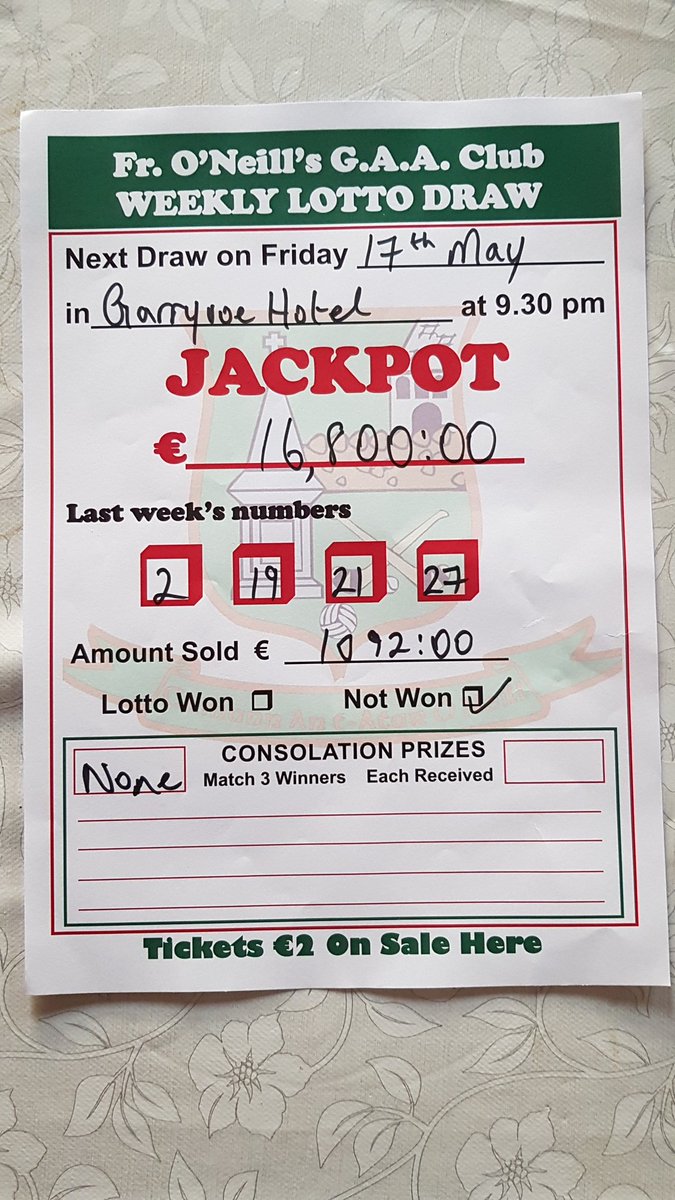 Fr. O'Neill's G.A.A. Club
WEEKLY LOTTO DRAW
Next Draw on Friday 17th May
in Garryvoe Hotel at 9.30 pm
JACKPOT
€ 16,800:00
Last week's numbers
2 19 21 27
Amount Sold € 1092:00
Lotto Won Not Won
None CONSOLATION PRIZES
Match 3 Winners Each Received
Tickets €2 On Sale Here